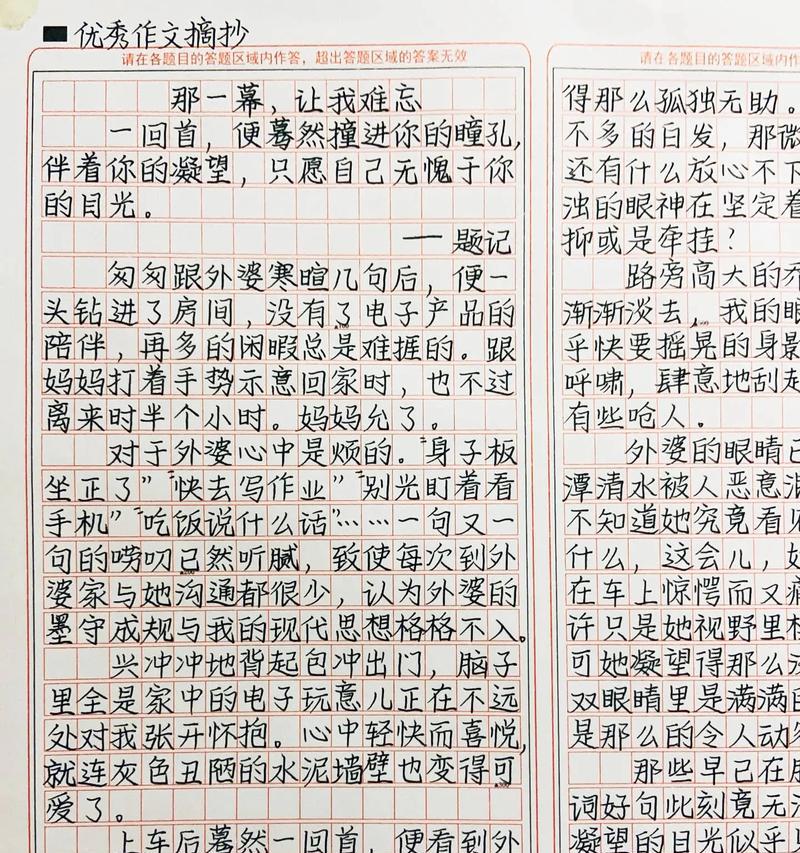 ■优秀作文摘抄
请在各题目的答题区域内作答，超出答题区域的答案无效
那一幕，让我难忘
一回首，便蓦然撞进你的瞳孔，
伴着你的凝望，只愿自己无愧于你
的目光。
——题记
匆匆跟外婆寒暄几句后，便一
头钻进了房间，没有了电子产品的
陪伴，再多的闲暇总是难捱的。跟
妈妈打着手势示意回家时，也不过
离来时半个小时。妈妈允了。
对于外婆心中是烦的。“身子板
坐正了”“快去写作业”“别光盯着看
手机”“吃饭说什么话”……一句又一
句的唠叨已然听腻，致使每次到外
婆家与她沟通都很少，认为外婆的
墨守成规与我的现代思想格格不入。
兴冲冲地背起包冲出门，脑子
里全是家中的电子玩意儿正在不远
处对我张开怀抱。心中轻快而喜悦，
就连灰色丑陋的水泥墙壁也变得可
爱了。
上车后蓦然一回首，便看到外
请在各题目的答题区域内作
得那么孤独无助。
不多的白发，那微
还有什么放心不下
浊的眼神在坚定着
抑或是牵挂？
路旁高大的乔
渐渐淡去，我的眼
乎快要摇晃的身影
呼啸，肆意地刮起
有些呛人。
外婆的眼睛已
潭清水被人恶意混
不知道她究竟看见
什么，这会儿，如
在车上惊愕而又
许只是她视野里模
可她凝望得那么
双眼睛里是满满的
是那么的令人动容
那些早已在
词好句此刻竟无
凝望的目光似乎